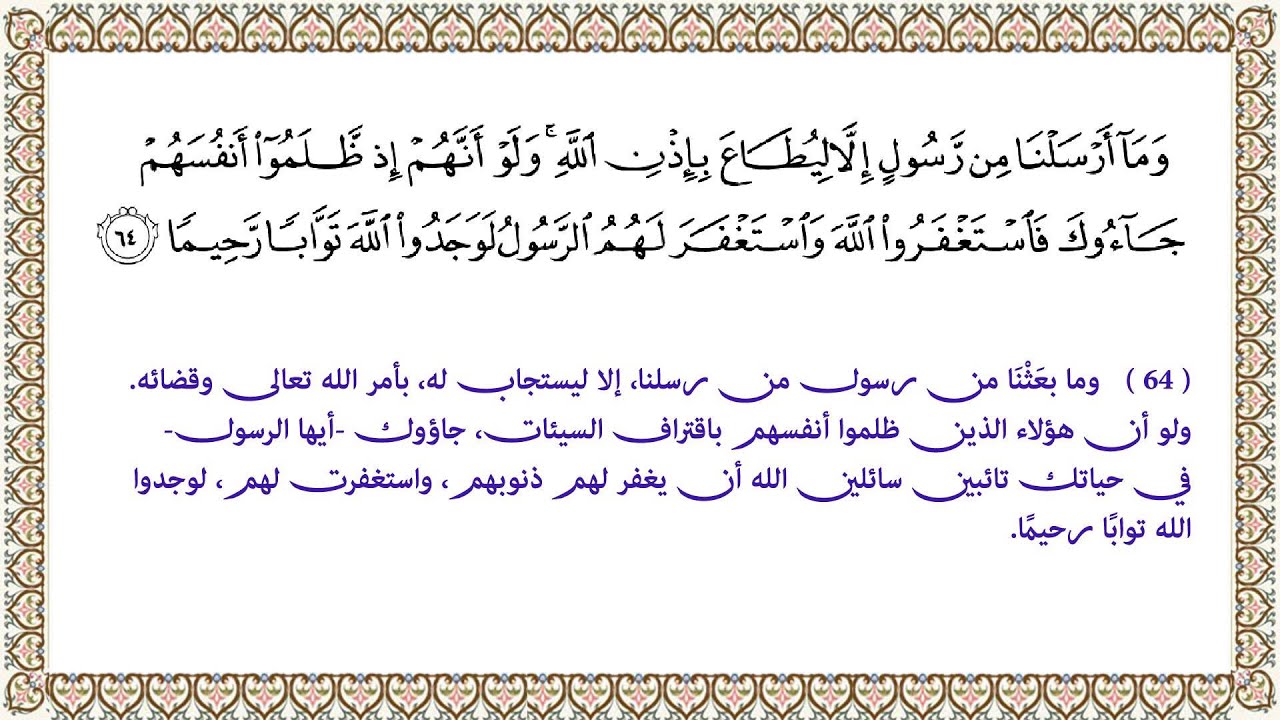 وَمَآ أَرْسَلْنَا مِن رَّسُولٍ إِلَّا لِيُطَاعَ بِإِذْنِ ٱللَّهِ ۚ وَلَوْ أَنَّهُمْ إِذ ظَّلَمُوٓا۟ أَنفُسَهُمْ
جَآءُوكَ فَٱسْتَغْفَرُوا۟ ٱللَّهَ وَٱسْتَغْفَرَ لَهُمُ ٱلرَّسُولُ لَوَجَدُوا۟ ٱللَّهَ تَوَّابًا رَّحِيمًا ٦٤
( 64 ) وما بعَثْنَا من رسول من رسلنا، إلا ليستجاب له، بأمر الله تعالى وقضائه.
ولو أن هؤلاء الذين ظلموا أنفسهم باقتراف السيئات، جاؤوك -أيها الرسول-
في حياتك تائبين سائلين الله أن يغفر لهم ذنوبهم، واستغفرت لهم، لوجدوا
الله توابًا رحيمًا.